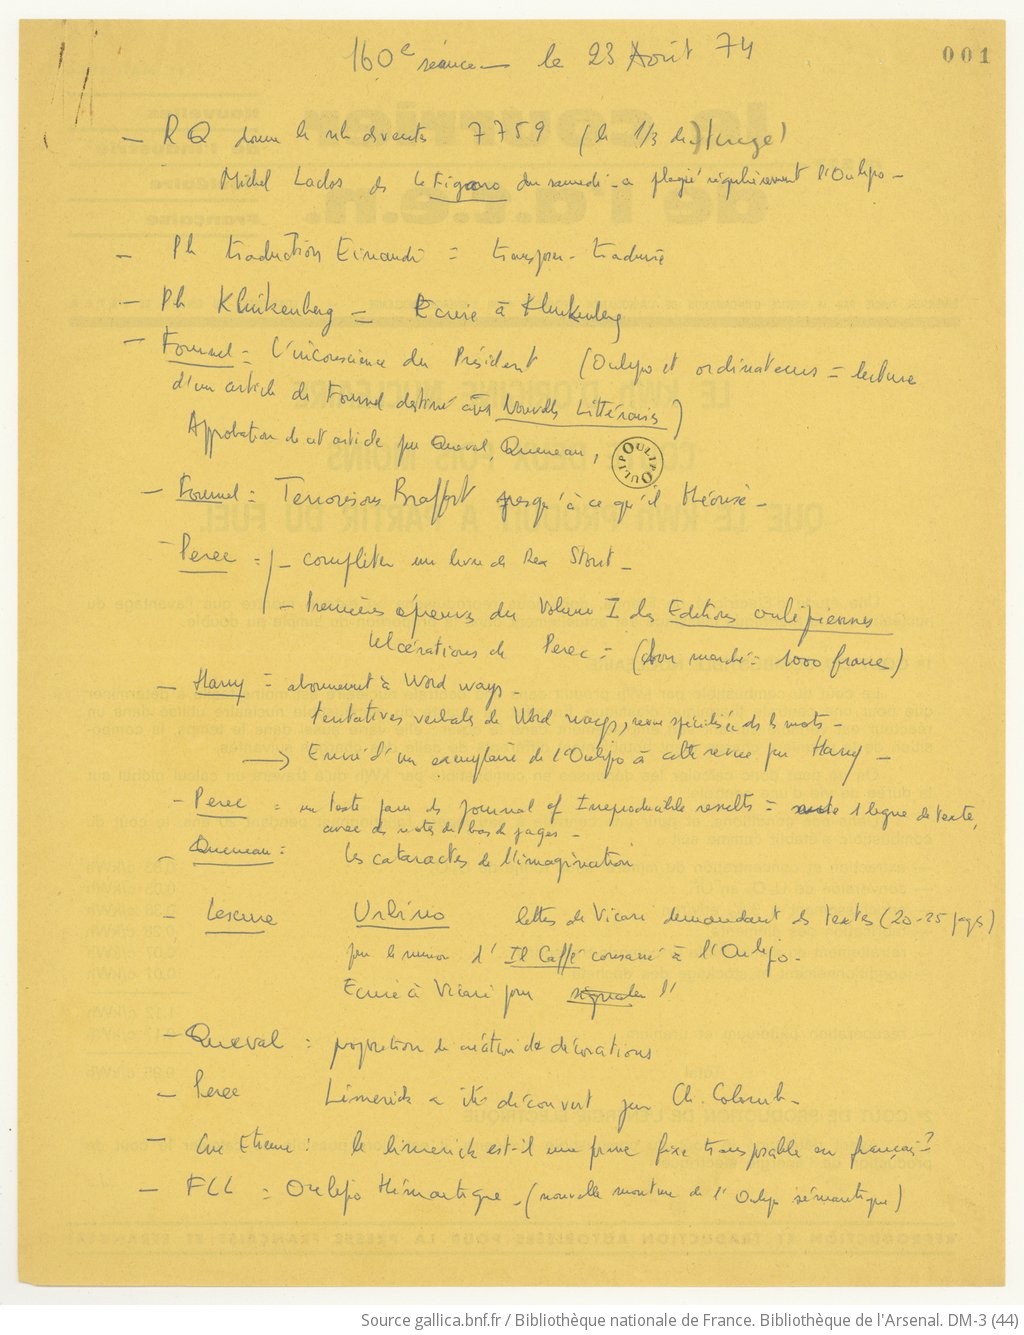 160e séance — le 23 Août 74
001
— RQ donne le nb de ventes 7759 (le 1/3 du tirage)
Michel Laclos ds le Figaro du samedi - a plagié régulièrement l'Oulipo —
— Ph traduction Einaudi = transpos- traduire
— Ph Klinkenberg = Ecrire à Klinkenberg
— Fournel = L'inconscience du Président (Oulipo et ordinateurs = lecture
d'un article de Fournel destiné aux Nouvelles Littéraires)
Approbation de cet article par Queval, Queneau,
OULIPO OULIPO
— Fournel = Terrorisons Braffort jusqu'à ce qu'il théorise —
— Perec = — compléter un livre de Rex Stout —
— Premières épreuves du Volume I des Editions oulipiennes
Ulcérations de Perec = (bon marché = 1000 francs)
— Harry = abonnement à Word ways —
tentatives verbales de Word ways, revue spécialisée ds les mots —
→ Envoi d'un exemplaire de l'Oulipo à cette revue par Harry —
— Perec = un texte pour le Journal of Irreproducible results = 1 ligne de texte,
avec des notes de bas de pages —
— Queneau : les cataractes de l'imagination
— Lescure Urbino lettre de Vicari demandant des textes (20-25 pages)
pour le numéro d'Il Caffé consacré à l'Oulipo —
Ecrire à Vicari pour signaler l'
— Queval : proposition de création de décorations
— Perec Limerick a été découvert par Ch. Colomb —
— Luc Etienne : le limerick est-il une forme fixe transposable en français ?
— FLL = Oulipo sémantique — (nouvelle mouture de l'Oulipo sémantique)
Source gallica.bnf.fr / Bibliothèque nationale de France. Bibliothèque de l'Arsenal. DM-3 (44)